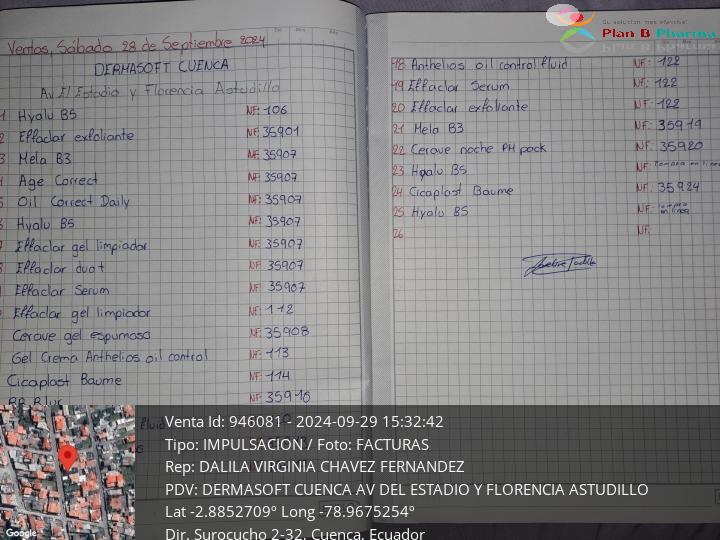 Ventas, Sábado 28 de Septiembre 2024
DERMASOFT CUENCA
Av El Estadio y Florencia Astudillo
1 Hyalu B5 NF: 106
2 Effaclar exfoliante NF: 35901
3 Mela B3 NF: 35907
Age Correct NF: 35907
5 Oil Correct Daily NF: 35907
6 Hyalu B5 NF: 35907
Effaclar gel limpiador NF: 35907
Effaclar duo+ NF: 35907
Effaclar Serum NF: 35907
Effaclar gel limpiador NF: 112
Cerave gel espumoso NF: 35908
Gel Crema Anthelios oil control NF: 113
Cicaplast Baume NF: 114
BB Blur NF: 35916
fluid
Su solución más efectiva!
Plan B Pharma
18 Anthelios oil control fluid NF: 122
19 Effaclar Serum NF: 122
20 Effaclar exfoliante NF: 122
21 Mela B3 NF: 35919
22 Cerave noche PM pack NF: 35920
23 Hyalu B5 NF: compra en linea
24 Cicaplast Baume NF: 35924
25 Hyalu B5 NF: compra en linea
26 NF:
Venta Id: 946081 - 2024-09-29 15:32:42
Tipo: IMPULSACION / Foto: FACTURAS
Rep: DALILA VIRGINIA CHAVEZ FERNANDEZ
PDV: DERMASOFT CUENCA AV DEL ESTADIO Y FLORENCIA ASTUDILLO
Lat -2.8852709º Long -78.9675254º
Dir. Surocucho 2-32, Cuenca, Ecuador
Google